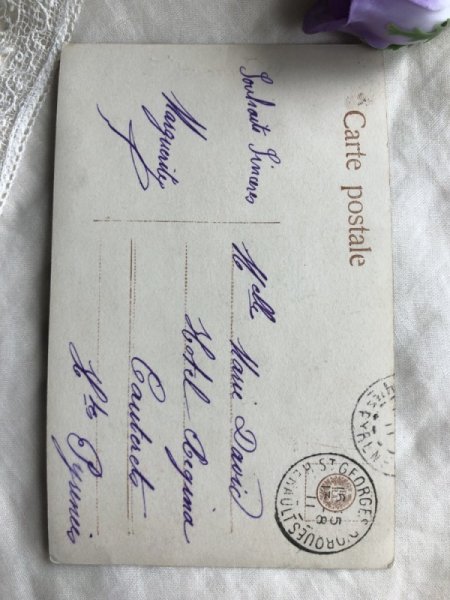 Carte postale
Souhaits Sincères
Marguerite
Melle Marie David
Hotel Regina
Cauterets
Htes Pyrénées
ST GEORGES D'ORQUES
HERAULT
15